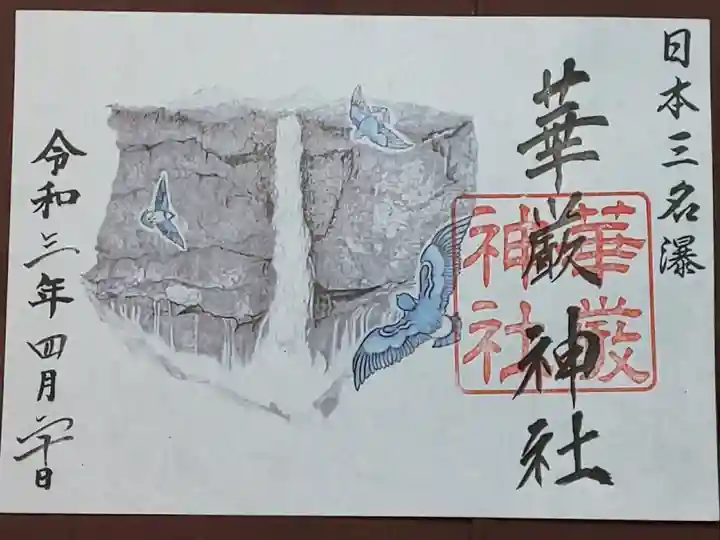 日本三名瀑
華厳神社
華厳
神社
令和三年四月 日